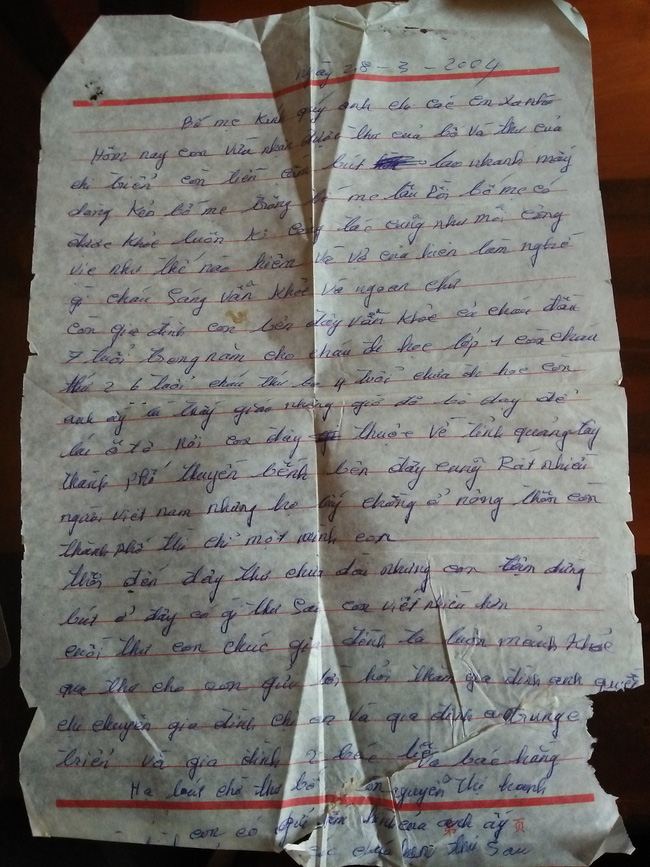 ngày 28-3-2004
Bố mẹ kính quý anh chị các em xa nhớ
Hôm nay con vừa nhận được thư của bố và thư của
chị triển con liền cầm bút lao nhanh mấy
dòng kẻo bố mẹ trông bố mẹ lâu rồi bố mẹ có
được khỏe luôn k công tác cũng như mọi công
việc như thế nào hiền và vợ của hiền làm nghề
gì cháu Sáng vẫn khỏe và ngoan chứ
còn gia đình con bên đây vẫn khỏe cả cháu đầu
7 tuổi trong năm cho cháu đi học lớp 1 còn cháu
thứ 2 6 tuổi cháu thứ ba 4 tuổi chưa đi học còn
anh ấy là thầy giáo nhưng giờ đã bỏ dạy để
lái ô tô nơi con đây thuộc về tỉnh quảng tây
thành phố thuyền bênh bên đây cũng Rất nhiều
người việt nam nhưng họ lấy chồng ở nông thôn còn
thành phố thì chỉ một mình con
thôi đến đây thư chưa dài nhưng con tạm dừng
bút ở đây có gì thư Sau con viết nhiều hơn
cuối thư con chúc gia đình ta luôn mạnh khỏe
qua thư cho con gửi lời hỏi thăm gia đình anh
chị chuyên gia đình chị an và gia đình trung
triển và gia đình 2 bác và bác hằng
Hạ bút chờ thư bố con nguyễn thị hoanh
con có gửi tấm hình của anh ấy 页
thư Sau